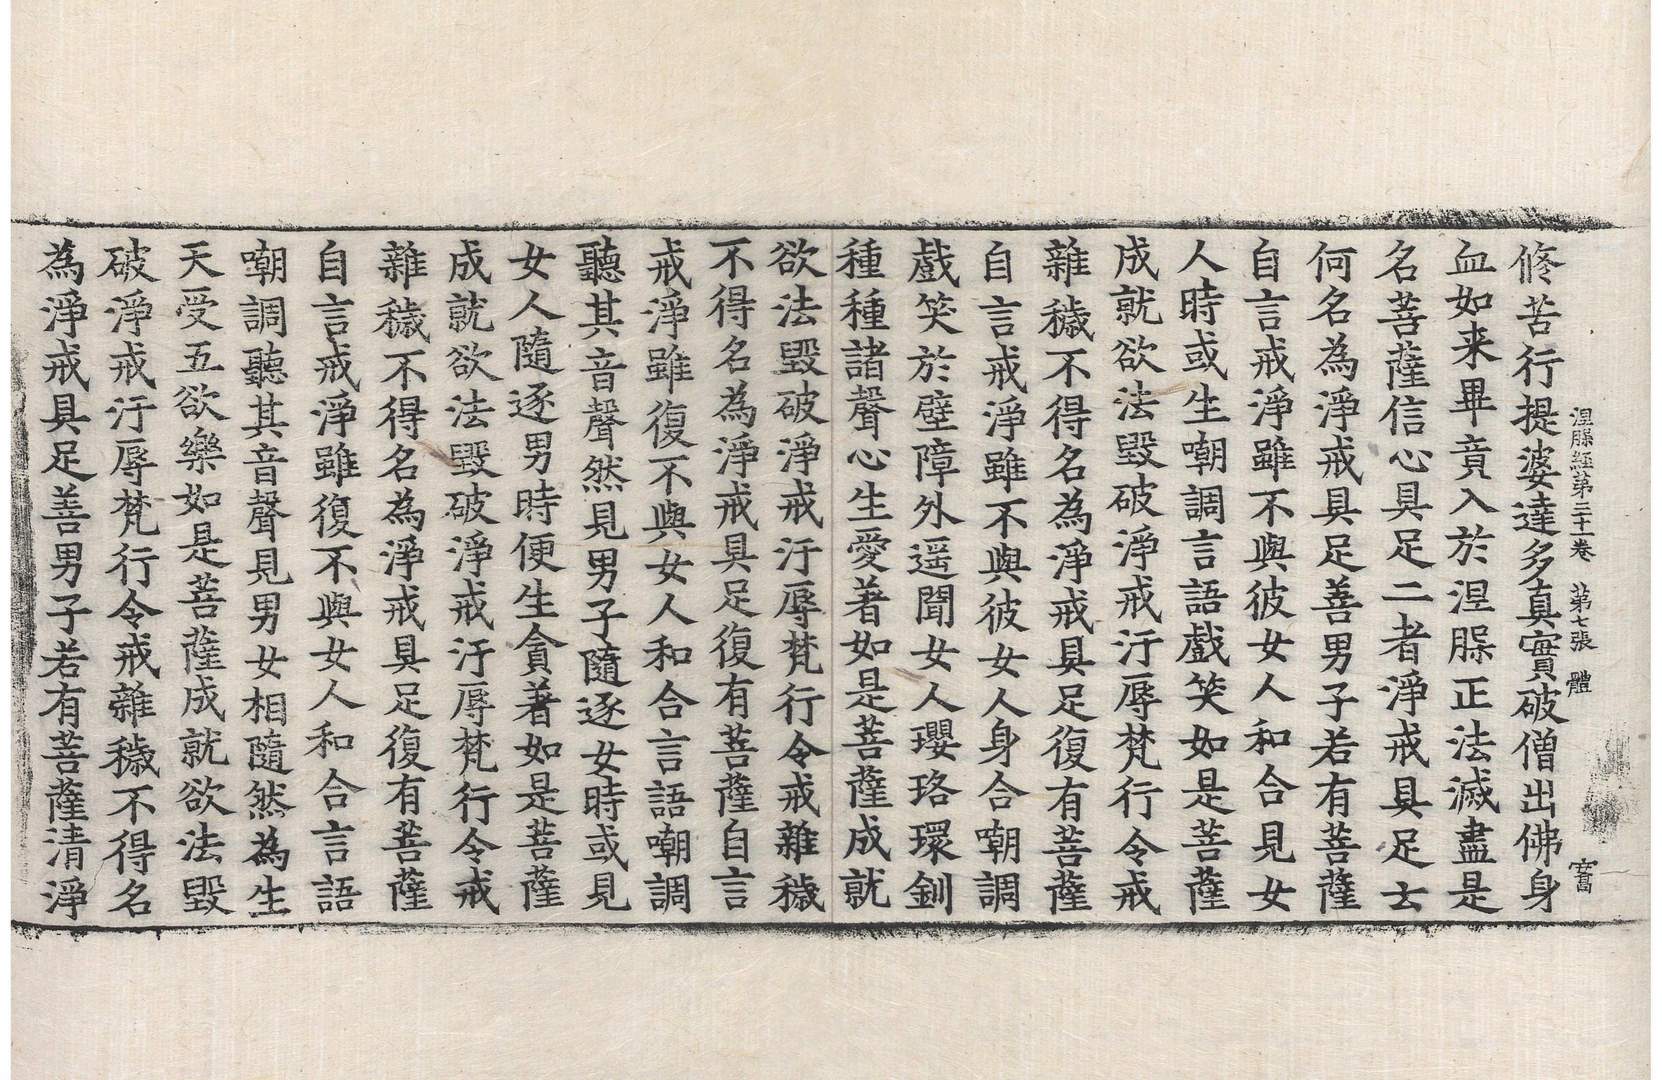 涅槃經第三十一卷 第七張 體
修苦行提婆達多真實破僧出佛身
血如来畢竟入於涅槃正法滅盡是
名菩薩信心具足二者淨戒具足云
何名為淨戒具足善男子若有菩薩
自言戒淨雖不與彼女人和合見女
人時或生嘲調言語戲笑如是菩薩
成就欲法毀破淨戒汙辱梵行令戒
雜穢不得名為淨戒具足復有菩薩
自言戒淨雖不與彼女人身合嘲調
戲笑於壁障外遥聞女人瓔珞環釧
種種諸聲心生愛著如是菩薩成就
欲法毀破淨戒汙辱梵行令戒雜穢
不得名為淨戒具足復有菩薩自言
戒淨雖復不與女人和合言語嘲調
聽其音聲然見男子隨逐女時或見
女人隨逐男時便生貪著如是菩薩
成就欲法毀破淨戒汙辱梵行令戒
雜穢不得名為淨戒具足復有菩薩
自言戒淨雖復不與女人和合言語
嘲調聽其音聲見男女相隨然為生
天受五欲樂如是菩薩成就欲法毀
破淨戒汙辱梵行令戒雜穢不得名
為淨戒具足善男子若有菩薩清淨